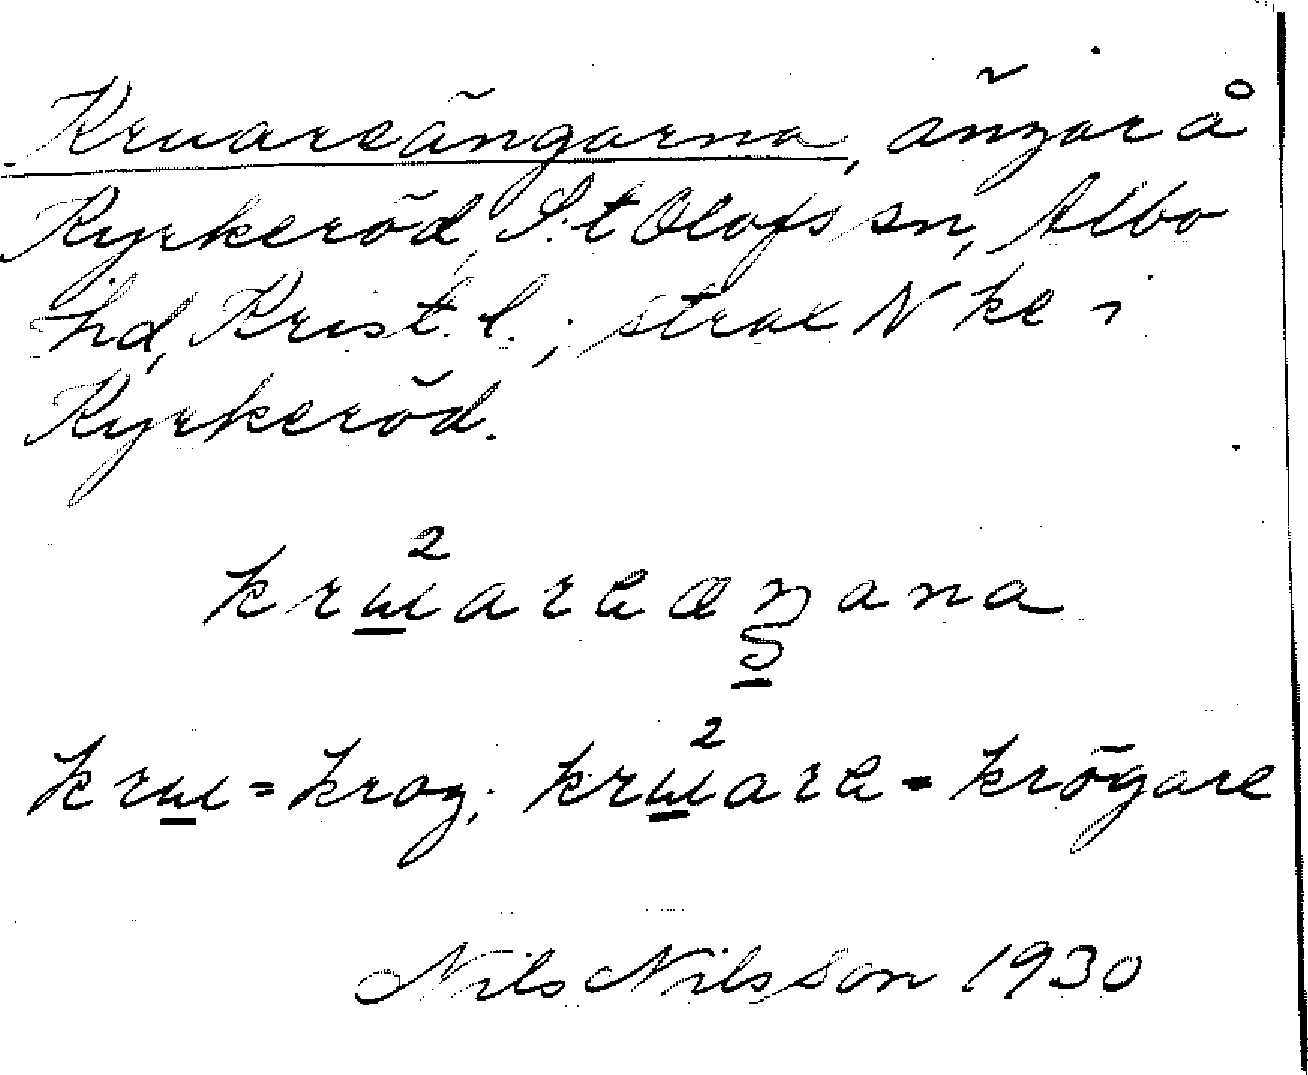 Kruareängarna, ängar å
Kyrkeröd, S:t Olofs sn, Albo
hd, Krist. l.; strax N kc i
Kyrkeröd.
krɯ²areæŋana
krɯ = krog; krɯ²are = krögare
Nils Nilsson 1930